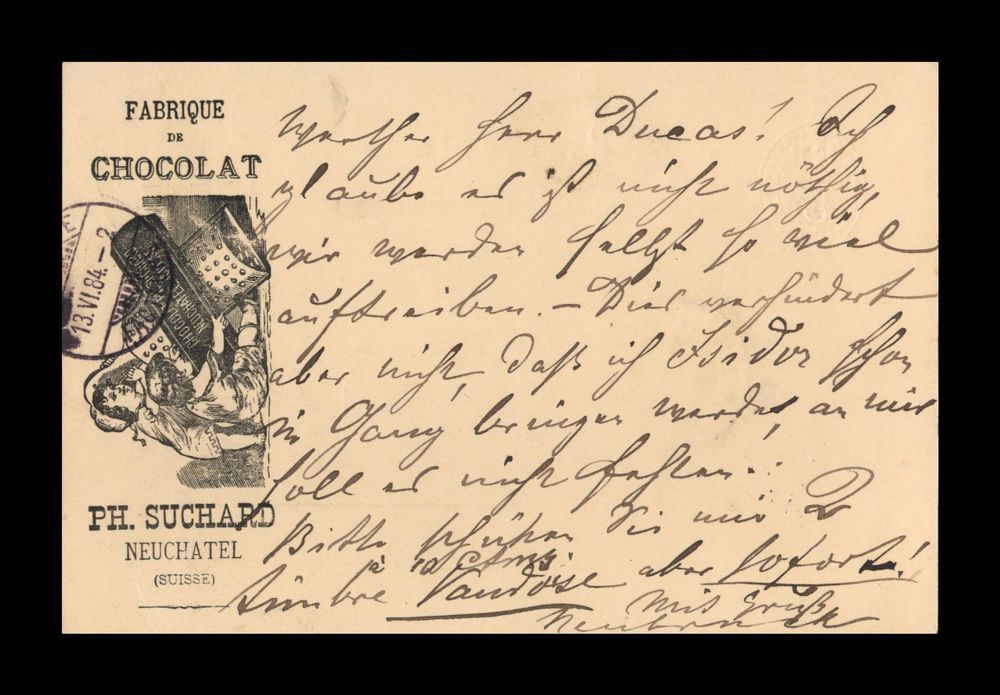 FABRIQUE
DE
CHOCOLAT
PH. SUCHARD
NEUCHATEL
(SUISSE)
13.VI.84.–2
CHOCOLAT
Werther Herr Ducas! Ich
glaube es ist nicht nöthig,
wir werden selbst so viel
auftreiben. – Dies verhindert
aber nicht, daß ich Isidor schon
in Gang bringen werde, an mir
soll es nicht fehlen.
Bitte schicken Sie mir 2
à 10 Ctms.
timbre Vaudoise aber sofort!
Mit Gruß